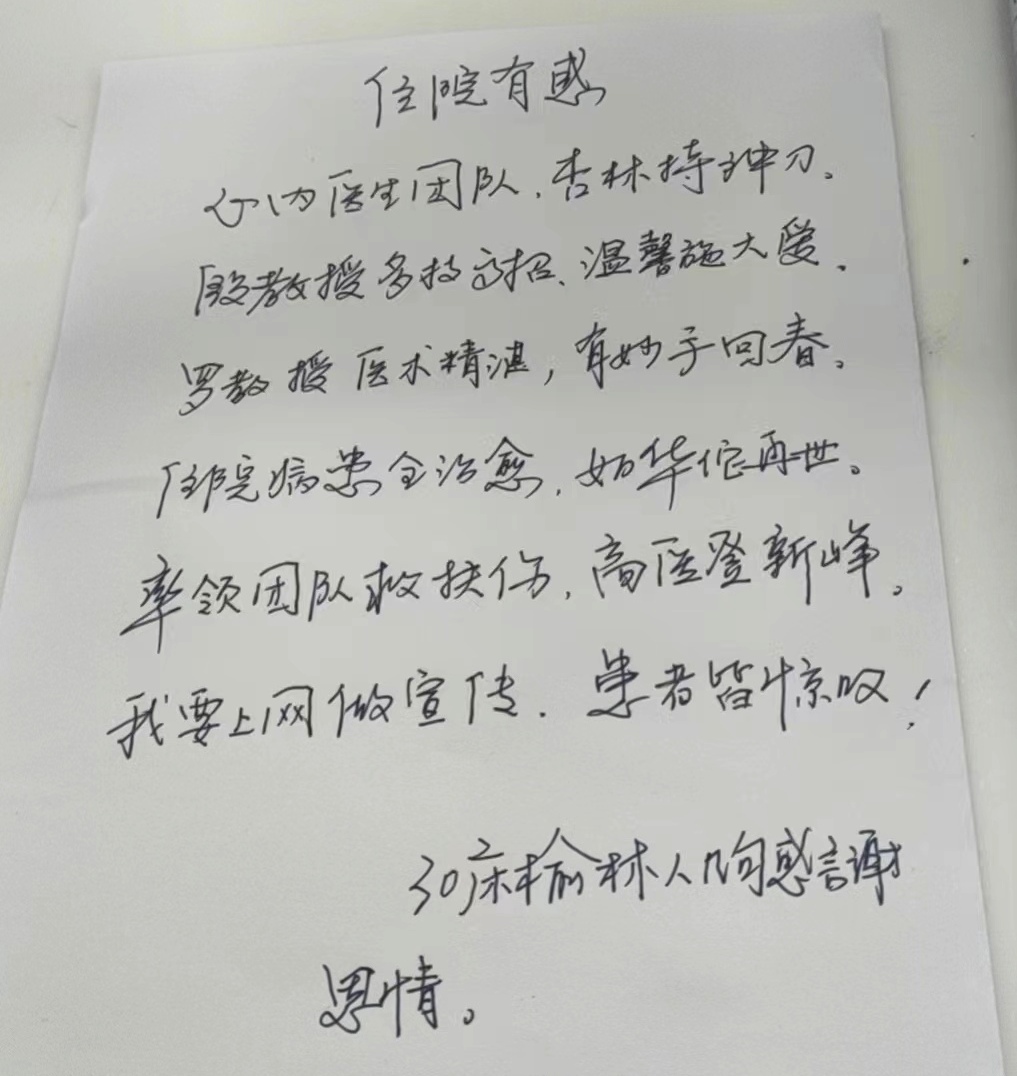 住院有感
心内医生团队、杏林持神刀、
殷教授多技高招、温馨施大爱、
罗教授医术精湛，有妙手回春。
住院病患全治愈、如华佗再世。
率领团队救扶伤、高医登新峰、
我要上网做宣传、患者皆惊叹！
30床榆林人 感謝
恩情。